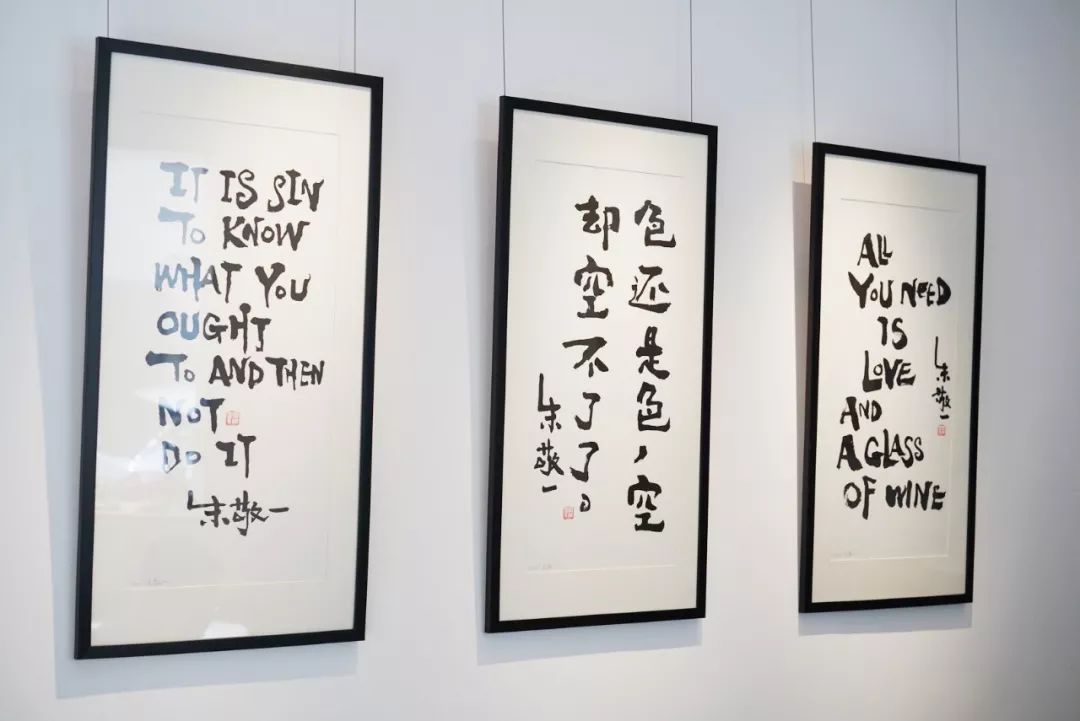 IT IS SIN
TO KNOW
WHAT YOU
OUGHT
TO AND THEN
NOT
DO IT
朱敬一
色还是色,空
却空不了了。
朱敬一
ALL
YOU NEED
IS
LOVE
AND
A GLASS
OF WINE
朱敬一